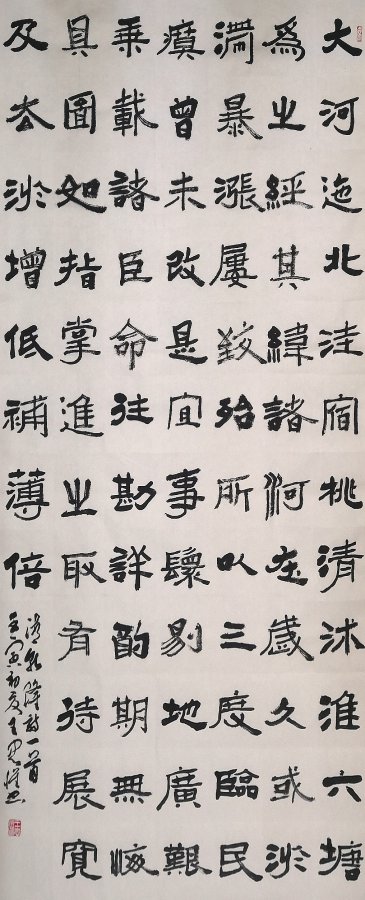 大河迤北洼宿桃清沭淮六塘
為之經其緯諸河在歲久或淤
滯暴漲屢致殆所以三度臨民
瘼曾未改是宜事剔地廣艱
乘載諸臣命往勘詳酌期無悔
具圖如指掌進止取有待展寬
及去淤增低補薄倍
清乾隆詩一首
壬寅初夏王書